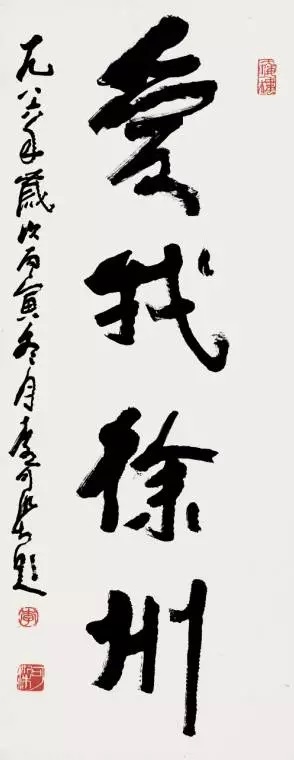 爱我徐州
一九八六年岁次丙寅冬月李可染题